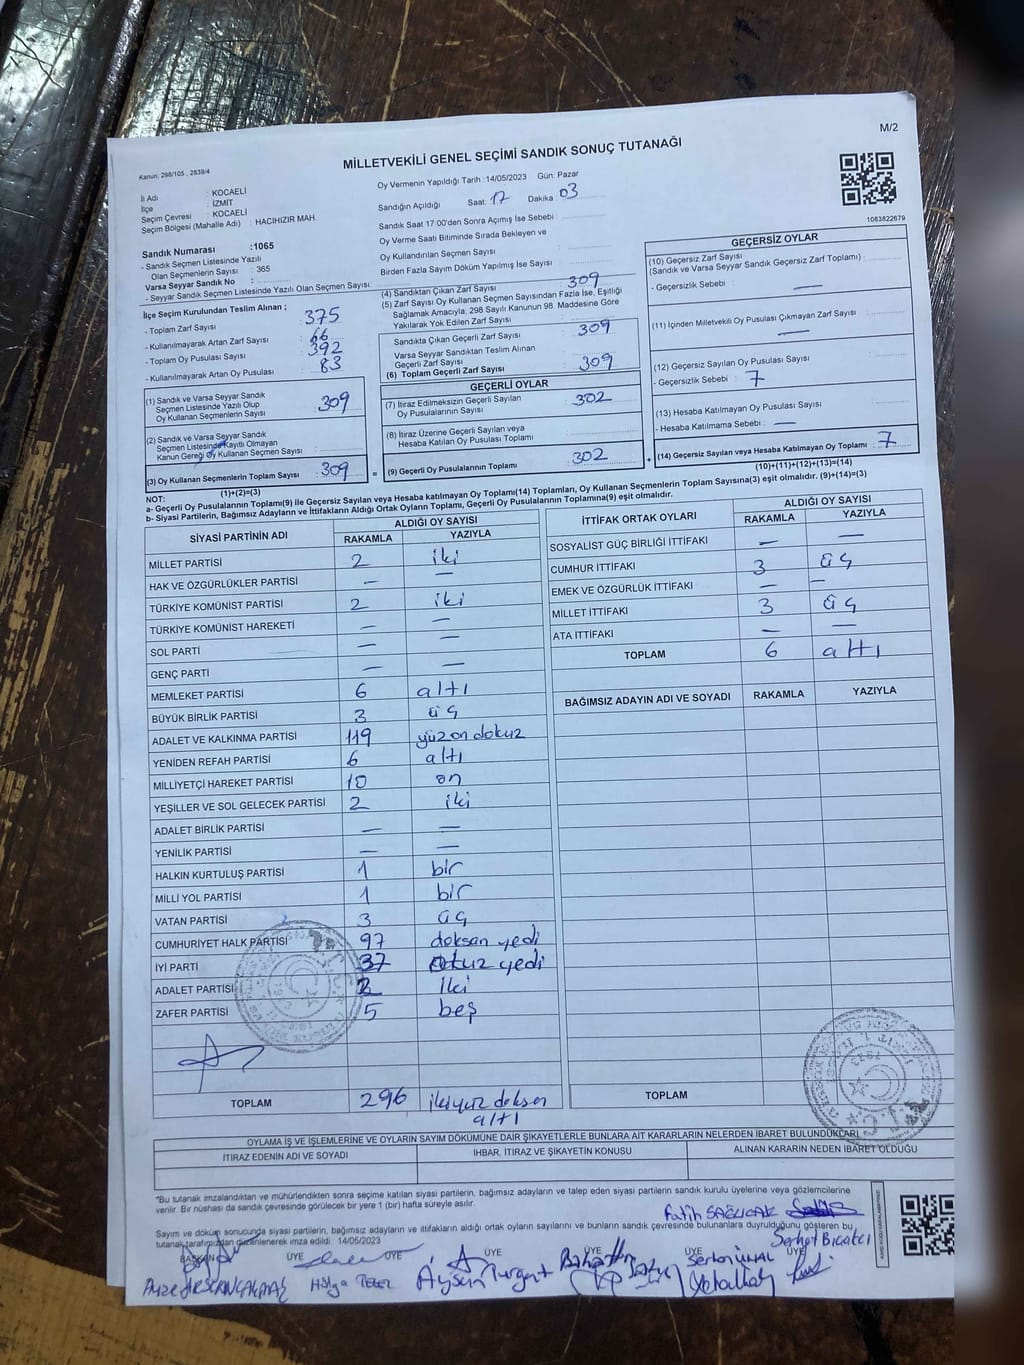 M/2
Kanun: 298/105 , 2839/4
MİLLETVEKİLİ GENEL SEÇİMİ SANDIK SONUÇ TUTANAĞI
İl Adı : KOCAELİ
İlçe : İZMİT
Seçim Çevresi : KOCAELİ
Seçim Bölgesi (Mahalle Adı) : HACIHIZIR MAH.
Sandık Numarası :1065
- Sandık Seçmen Listesinde Yazılı
Olan Seçmenlerin Sayısı : 365
Varsa Seyyar Sandık No :
- Seyyar Sandık Seçmen Listesinde Yazılı Olan Seçmen Sayısı:
Oy Vermenin Yapıldığı Tarih :14/05/2023 Gün: Pazar
Sandığın Açıldığı Saat: 17 Dakika: 03
Sandık Saat 17:00'den Sonra Açılmış İse Sebebi :
Oy Verme Saati Bitiminde Sırada Bekleyen ve
Oy Kullandırılan Seçmen Sayısı :
Birden Fazla Sayım Döküm Yapılmış İse Sayısı :
1083822679
İlçe Seçim Kurulundan Teslim Alınan ;
- Toplam Zarf Sayısı : 375
- Kullanılmayarak Artan Zarf Sayısı : 66
- Toplam Oy Pusulası Sayısı : 392
- Kullanılmayarak Artan Oy Pusulası : 83
(1) Sandık ve Varsa Seyyar Sandık
Seçmen Listesinde Yazılı Olup
Oy Kullanan Seçmenlerin Sayısı 309
(2) Sandık ve Varsa Seyyar Sandık
Seçmen Listesinde Kayıtlı Olmayan
Kanun Gereği Oy Kullanan Seçmen Sayısı :
(3) Oy Kullanan Seçmenlerin Toplam Sayısı : 309
(1)+(2)=(3)
(4) Sandıktan Çıkan Zarf Sayısı : 309
(5) Zarf Sayısı Oy Kullanan Seçmen Sayısından Fazla İse, Eşitliği
Sağlamak Amacıyla, 298 Sayılı Kanunun 98. Maddesine Göre
Yakılarak Yok Edilen Zarf Sayısı :
Sandıkta Çıkan Geçerli Zarf Sayısı : 309
Varsa Seyyar Sandıktan Teslim Alınan
Geçerli Zarf Sayısı :
(6) Toplam Geçerli Zarf Sayısı : 309
GEÇERLİ OYLAR
(7) İtiraz Edilmeksizin Geçerli Sayılan
Oy Pusulalarının Sayısı : 302
(8) İtiraz Üzerine Geçerli Sayılan veya
Hesaba Katılan Oy Pusulası Toplamı :
= (9) Geçerli Oy Pusulalarının Toplamı 302 +
GEÇERSİZ OYLAR
(10) Geçersiz Zarf Sayısı
(Sandık ve Varsa Seyyar Sandık Geçersiz Zarf Toplamı) :
- Geçersizlik Sebebi : —
(11) İçinden Milletvekili Oy Pusulası Çıkmayan Zarf Sayısı :
—
(12) Geçersiz Sayılan Oy Pusulası Sayısı :
- Geçersizlik Sebebi : 7
(13) Hesaba Katılmayan Oy Pusulası Sayısı :
- Hesaba Katılmama Sebebi : —
(14) Geçersiz Sayılan veya Hesaba Katılmayan Oy Toplamı : 7
(10)+(11)+(12)+(13)=(14)
NOT:
a- Geçerli Oy Pusulalarının Toplamı(9) ile Geçersiz Sayılan veya Hesaba katılmayan Oy Toplamı(14) Toplamları, Oy Kullanan Seçmenlerin Toplam Sayısına(3) eşit olmalıdır. (9)+(14)=(3)
b- Siyasi Partilerin, Bağımsız Adayların ve İttifakların Aldığı Ortak Oyların Toplamı, Geçerli Oy Pusulalarının Toplamına(9) eşit olmalıdır.
SİYASİ PARTİNİN ADI ALDIĞI OY SAYISI
RAKAMLA YAZIYLA
MİLLET PARTİSİ 2 iki
HAK VE ÖZGÜRLÜKLER PARTİSİ — —
TÜRKİYE KOMÜNİST PARTİSİ 2 iki
TÜRKİYE KOMÜNİST HAREKETİ — —
SOL PARTİ — —
GENÇ PARTİ — —
MEMLEKET PARTİSİ 6 altı
BÜYÜK BİRLİK PARTİSİ 3 üç
ADALET VE KALKINMA PARTİSİ 119 yüz on dokuz
YENİDEN REFAH PARTİSİ 6 altı
MİLLİYETÇİ HAREKET PARTİSİ 10 on
YEŞİLLER VE SOL GELECEK PARTİSİ 2 iki
ADALET BİRLİK PARTİSİ — —
YENİLİK PARTİSİ — —
HALKIN KURTULUŞ PARTİSİ 1 bir
MİLLİ YOL PARTİSİ 1 bir
VATAN PARTİSİ 3 üç
CUMHURİYET HALK PARTİSİ 97 doksan yedi
İYİ PARTİ 37 otuz yedi
ADALET PARTİSİ 2 iki
ZAFER PARTİSİ 5 beş
TOPLAM 296 ikiyüz doksan
altı
İTTİFAK ORTAK OYLARI ALDIĞI OY SAYISI
RAKAMLA YAZIYLA
SOSYALİST GÜÇ BİRLİĞİ İTTİFAKI — —
CUMHUR İTTİFAKI 3 üç
EMEK VE ÖZGÜRLÜK İTTİFAKI — —
MİLLET İTTİFAKI 3 üç
ATA İTTİFAKI — —
TOPLAM 6 altı
BAĞIMSIZ ADAYIN ADI VE SOYADI RAKAMLA YAZIYLA
TOPLAM
OYLAMA İŞ VE İŞLEMLERİNE VE OYLARIN SAYIM DÖKÜMÜNE DAİR ŞİKAYETLERLE BUNLARA AİT KARARLARIN NELERDEN İBARET BULUNDUKLARI
İTİRAZ EDENİN ADI VE SOYADI İHBAR, İTİRAZ VE ŞİKAYETİN KONUSU ALINAN KARARIN NEDEN İBARET OLDUĞU
*Bu tutanak imzalandıktan ve mühürlendikten sonra seçime katılan siyasi partilerin, bağımsız adayların ve talep eden siyasi partilerin sandık kurulu üyelerine veya gözlemcilerine
verilir. Bir nüshası da sandık çevresinde görülecek bir yere 1 (bir) hafta süreyle asılır.
Fatih SAĞLICAK
Sayım ve döküm sonucunda siyasi partilerin, bağımsız adayların ve ittifakların aldığı ortak oyların sayılarını ve bunların sandık çevresinde bulunanlara duyrulduğunu gösteren bu
tutanak tarafımızdan düzenlenerek imza edildi. 14/05/2023
BAŞKAN ÜYE ÜYE ÜYE ÜYE ÜYE ÜYE
Hülya
Aysun Turgut